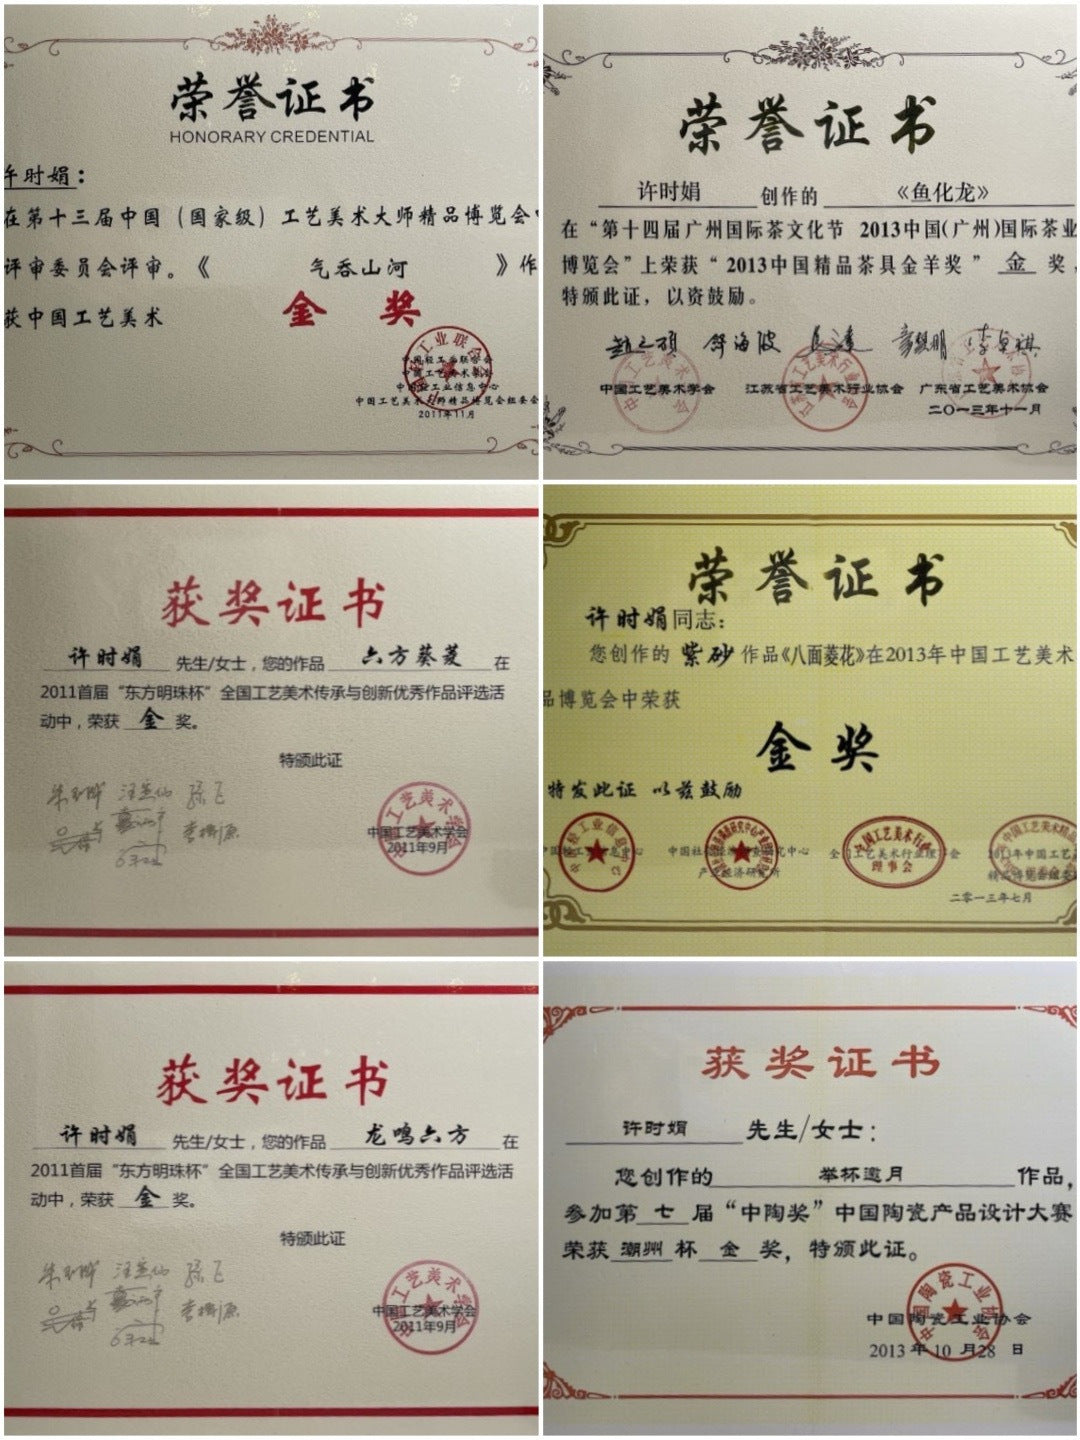 荣誉证书
HONORARY CREDENTIAL
许时娟：
在第十三届中国（国家级）工艺美术大师精品博览会
评审委员会评审。《 气吞山河 》作
获中国工艺美术 金 奖
中国轻工业联合会
中国工艺美术学会
中国轻工业信息中心
中国工艺美术大师精品博览会组委会
2011年11月
荣誉证书
许时娟 创作的 《鱼化龙》
在“第十四届广州国际茶文化节 2013中国(广州)国际茶业
博览会”上荣获“2013中国精品茶具金羊奖” 金 奖，
特颁此证，以资鼓励。
中国工艺美术学会 江苏省工艺美术行业协会 广东省工艺美术协会
二〇一三年十一月
获奖证书
许时娟 先生/女士，您的作品 六方葵菱 在
2011首届“东方明珠杯”全国工艺美术传承与创新优秀作品评选活
动中，荣获 金 奖。
特颁此证
中国工艺美术学会
2011年9月
荣誉证书
许时娟同志：
您创作的 紫砂 作品《八面菱花》在2013年中国工艺美术
品博览会中荣获
金奖
特发此证 以兹鼓励
中国轻工业信息中心
产业经济研究所
全国工艺美术行业理事会
二零一三年七月
获奖证书
许时娟 先生/女士，您的作品 龙鸣六方 在
2011首届“东方明珠杯”全国工艺美术传承与创新优秀作品评选活
动中，荣获 金 奖。
特颁此证
中国工艺美术学会
2011年9月
获奖证书
许时娟 先生/女士：
您创作的 举杯邀月 作品，
参加第 七 届“中陶奖”中国陶瓷产品设计大赛
荣获 潮州 杯 金 奖，特颁此证。
中国陶瓷工业协会
2013 年 10 月 28 日